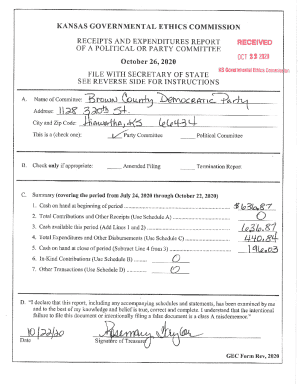 KANSAS GOVERNMENTAL ETHICS COMMISSION
RECEIPTS AND EXPENDITURES REPORT
OF A POLITICAL OR PARTY COMMITTEE
RECEIVED
October 26, 2020
OCT 2020
KS Governmental Ethics Commission
FILE WITH SECRETARY OF STATE
SEE REVERSE SIDE FOR INSTRUCTIONS
A. Name of Committee: Brown County Democratic Party
Address: 1128 320th St.
City and Zip Code: Hiawatha, KS 66434
This is a (check one): ✓ Party Committee Political Committee
B. Check only if appropriate: Amended Filing Termination Report
C. Summary (covering the period from July 24, 2020 through October 22, 2020)
1. Cash on hand at beginning of period $636.87
2. Total Contributions and Other Receipts (Use Schedule A) 0
3. Cash available this period (Add Lines 1 and 2) 636.87
4. Total Expenditures and Other Disbursements (Use Schedule C) 440.84
5. Cash on hand at close of period (Subtract Line 4 from 3) 196.03
6. In-Kind Contributions (Use Schedule B) 0
7. Other Transactions (Use Schedule D) 0
D. "I declare that this report, including any accompanying schedules and statements, has been examined by me
and to the best of my knowledge and belief is true, correct and complete. I understand that the intentional
failure to file this document or intentionally filing a false document is a class A misdemeanor."
10/22/20 Rosemary
Date Signature of Treasurer
GEC Form Rev, 2020